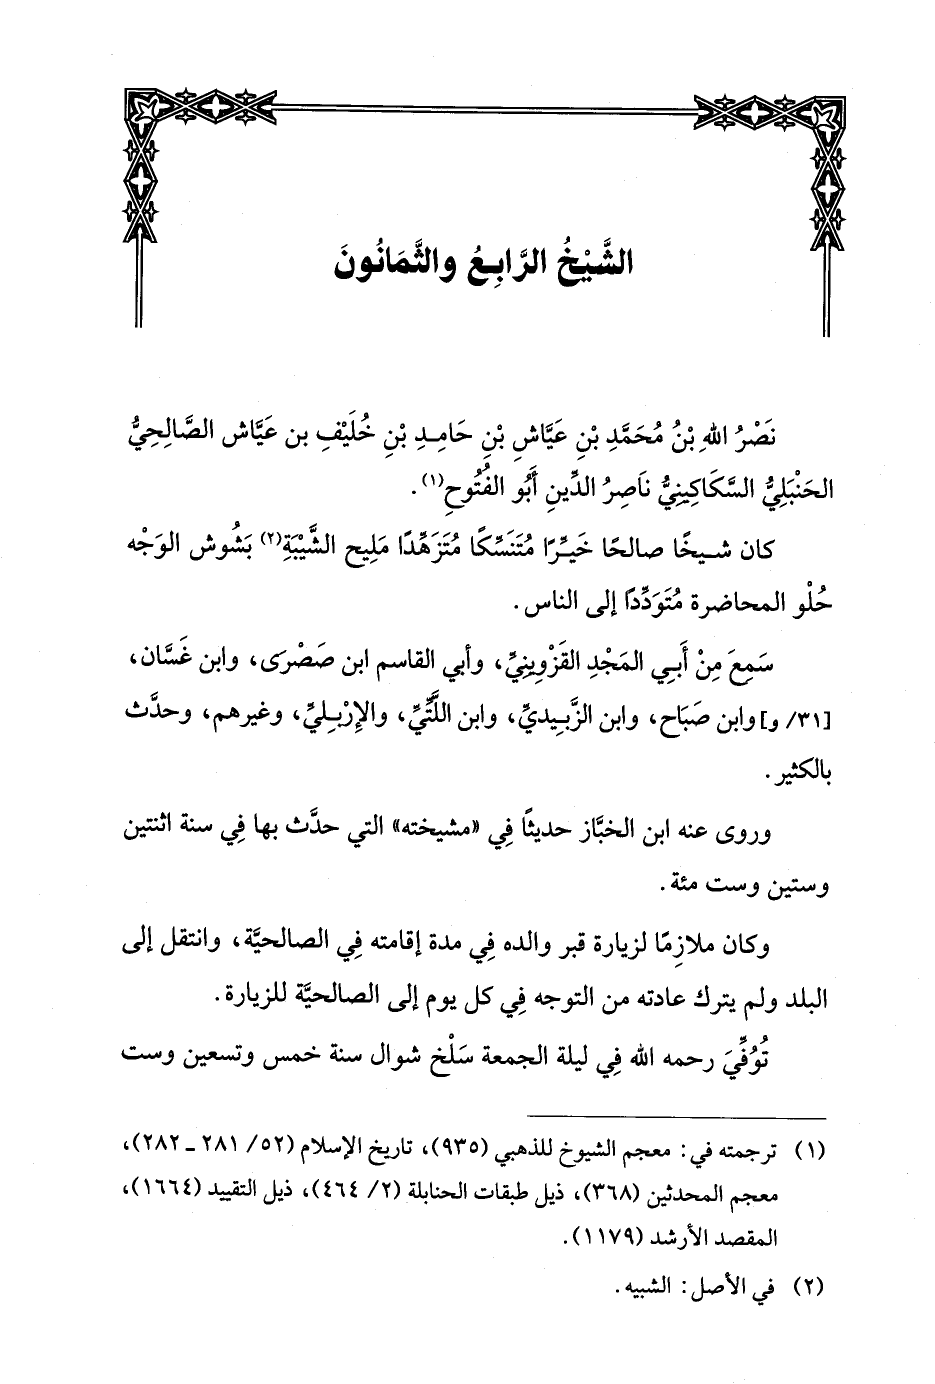 الشَّيْخُ الرَّابِعُ والثَّمَانُونَ
نَصْرُ اللهِ بْنُ مُحَمَّدِ بْنِ عَيَّاشِ بْنِ حَامِدِ بْنِ خُلَيْفِ بن عَيَّاش الصَّالِحِيُّ
الحَنْبَلِيُّ السَّكَاكِينِيُّ نَاصِرُ الدِّينِ أَبُو الفُتُوحِ(١).
كان شيخًا صالحًا خَيِّرًا مُتَنَسِّكًا مُتَزَهِّدًا مَلِيح الشَّيْبَةِ(٢) بَشُوش الوَجْه
حُلْو المحاضرة مُتَوَدِّدًا إلى الناس.
سَمِعَ مِنْ أَبِي المَجْدِ القَزْوِينِيِّ، وأبي القاسم ابن صَصْرَى، وابن غَسَّان،
[٣١/ و] وابن صَبَاح، وابن الزَّبِيديِّ، وابن اللَّتِّيِّ، والإِرْبليِّ، وغيرهم، وحدَّث
بالكثير.
وروى عنه ابن الخبَّاز حديثًا فِي «مشيخته» التي حدَّث بها فِي سنة اثنتين
وستين وست مئة.
وكان ملازِمًا لزيارة قبر والده فِي مدة إقامته فِي الصالحيَّة، وانتقل إلى
البلد ولم يترك عادته من التوجه فِي كل يوم إلى الصالحيَّة للزيارة.
تُوُفِّيَ رحمه الله فِي ليلة الجمعة سَلْخ شوال سنة خمس وتسعين وست
(١) ترجمته في: معجم الشيوخ للذهبي (٩٣٥)، تاريخ الإسلام (٥٢/ ٢٨١ ـ ٢٨٢)،
معجم المحدثين (٣٦٨)، ذيل طبقات الحنابلة (٢/ ٤٦٤)، ذيل التقييد (١٦٦٤)،
المقصد الأرشد (١١٧٩).
(٢) في الأصل: الشبيه.